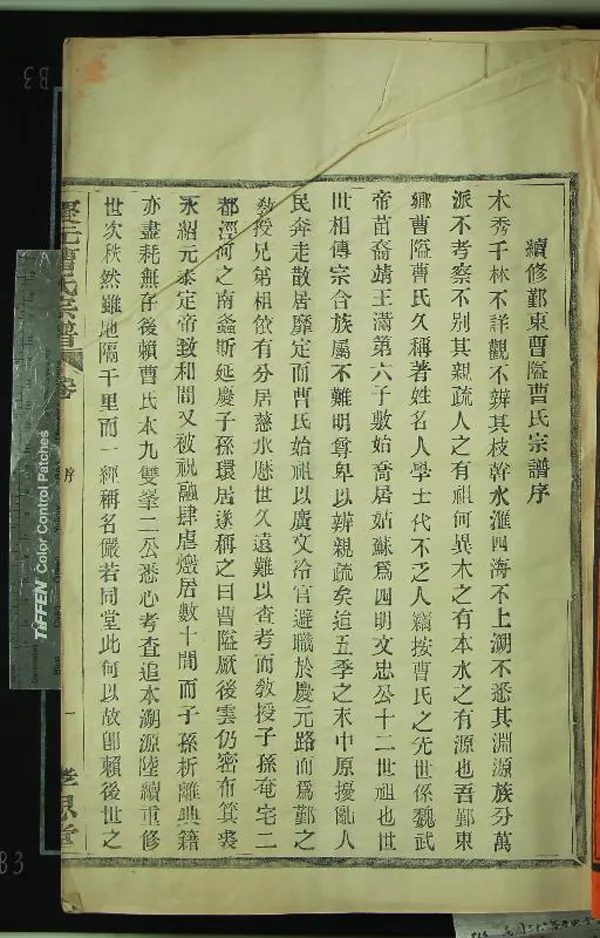 續修鄞東曹隘曹氏宗譜序
木秀千林不詳觀不辨其枝幹水滙四海不上溯不悉其淵源族分萬
派不考察不別其親疏人之有祖何異木之有本水之有源也吾鄞東
鄉曹隘曹氏久稱著姓名人學士代不乏人竊按曹氏之先世係魏武
帝苗裔靖王滿第六子敷始喬居姑蘇爲四明文忠公十二世祖也世
世相傳宗合族屬不難明尊卑以辨親疏矣迨五季之末中原擾亂人
民奔走散居靡定而曹氏始祖以廣文冷官避職於慶元路而爲鄞之
教授兄弟相飲有分居慈水歷世久遠難以查考而教授子孫奄宅二
都涇河之南螽斯延慶子孫環居遂稱之曰曹隘厥後雲仍密布箕裘
永紹元泰定帝致和間又被祝融肆虐燬居數十間而子孫析離典籍
亦盡耗無存後賴曹氏本九雙峯二公悉心考查追本溯源陸續重修
世次秩然雖地隔千里而一經稱名儼若同堂此何以故卽賴後世之
曹氏宗譜
卷
序
一
孝思堂
TIFFEN Color Control Patches
B3
B3